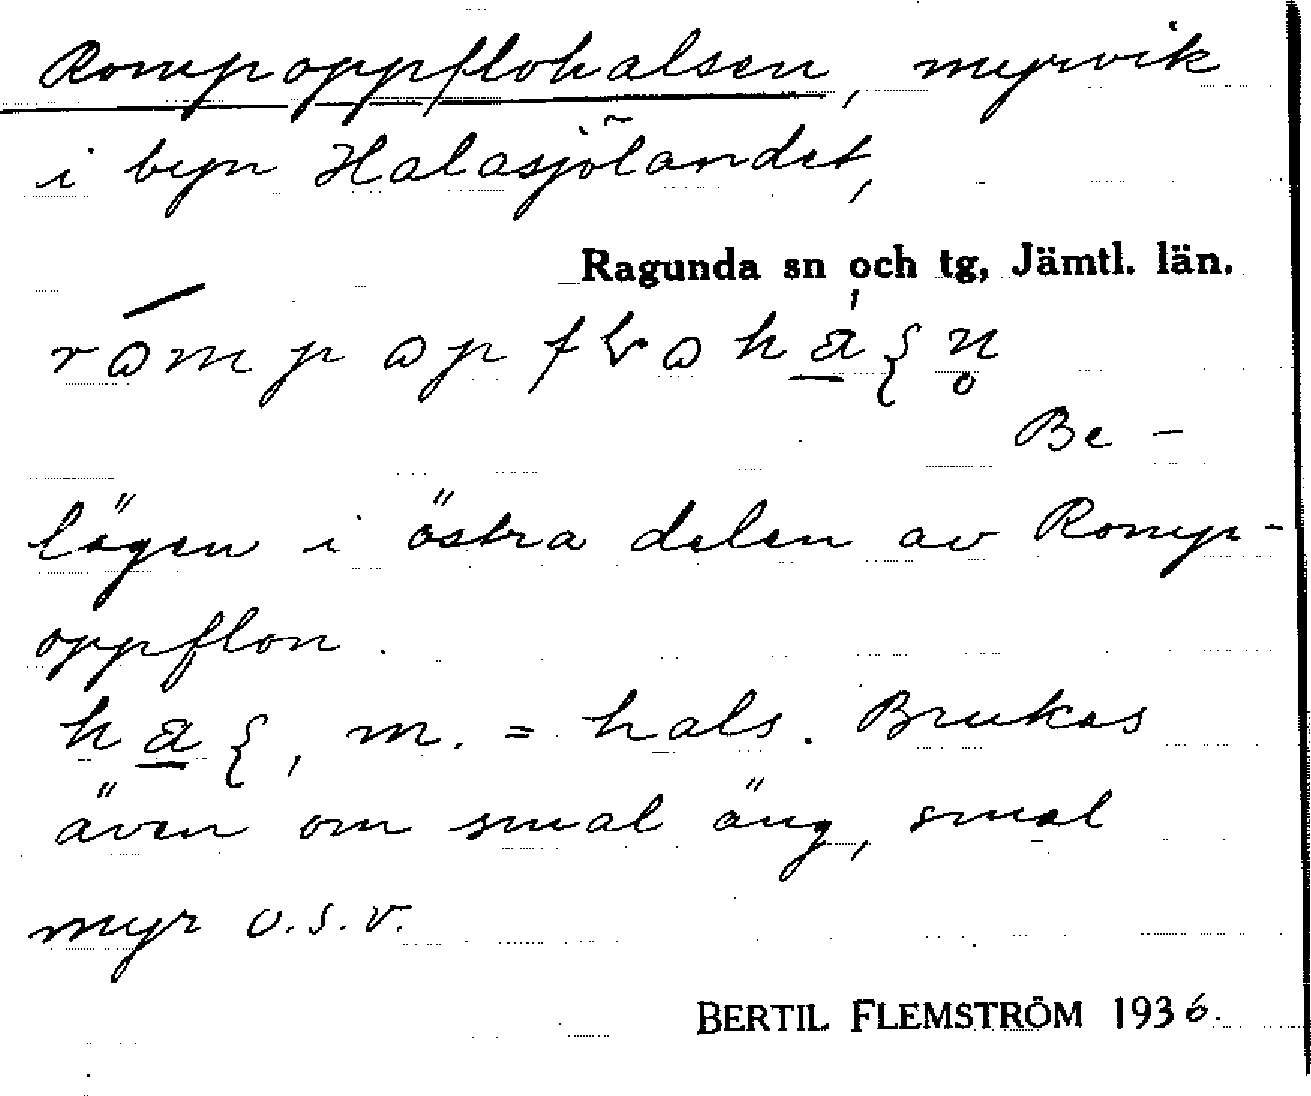 Rompoppflohalsen, myrvik
i byn Halasjölandet,
Ragunda sn och tg, Jämtl. län.
Be-
lägen i östra delen av Romp-
oppflon.
, m. = hals. Brukas
även om smal äng, smal
myr o.s.v.
BERTIL FLEMSTRÖM 1936.